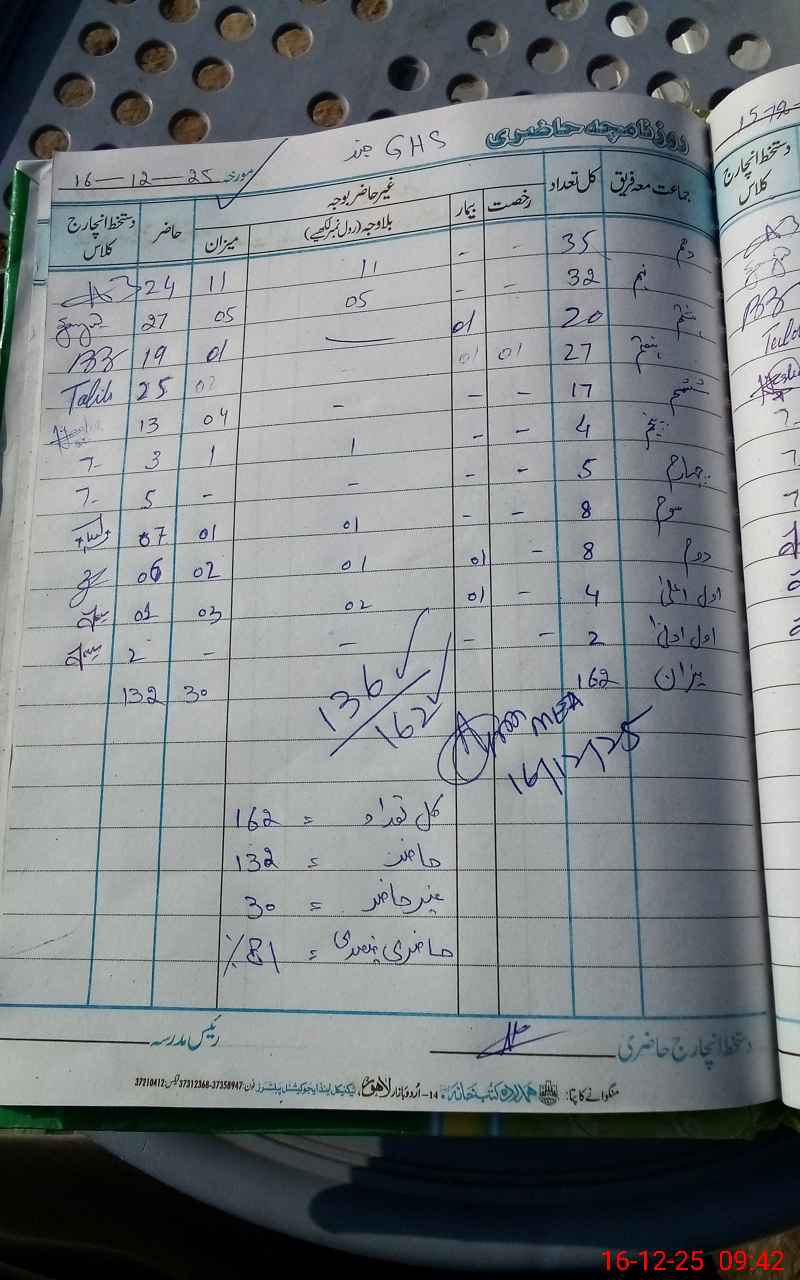 روزنامچہ حاضری GHS
مورخہ 16-12-25
جماعت معہ فریق کل تعداد رخصت بیمار غیر حاضر بوجہ بلاوجہ (رول نمبر لکھیے) میزان حاضر دستخط انچارج کلاس
دہم 35 - - 11 11 24
نہم 32 - - 05 05 27
ہشتم 20 01 01 19
ہفتم 27 01 01 02 25 Talib
ششم 17 - - - 04 13
پنجم 4 - - 1 1 3
چہارم 5 - - - - 5
سوم 8 - - 01 01 07
دوم 8 - 01 01 02 06
اول اعلیٰ 4 - 01 02 03 01
اول ادنیٰ 2 - - - - 2
میزان 162 30 132
136/162
MEA
16/12/25
کل تعداد = 162
حاضر = 132
غیر حاضر = 30
حاضری فیصدی = 81٪
دستخط انچارج حاضری رئیس مدرسہ
منگوانے کا پتا: ہمدرد کتب خانہ، 14-اُردو بازار لاہور، ٹیکنیکل اینڈ ایجوکیشنل پبلشرز فون: 37358947-37312368 فیکس: 37210412
دستخط انچارج کلاس
Talib
16-12-25 09:42